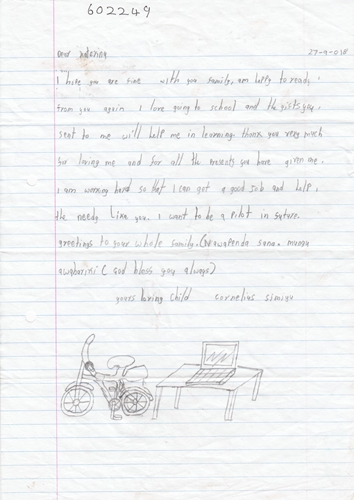 602249
Dear 27-9-018
I hope you are fine with you family, am happy to ready
from you again I love going to school and the gifts you
sent to me will help me in learning thank you very much
for loving me and for all the presents you have given me.
I am working hard so that I can get a good job and help
the needy like you. I want to be a Pilot in future
greetings to your whole family. (Nawapenda sana. mungu
awabariki (God bless you always)
yours loving child cornelius simiyu